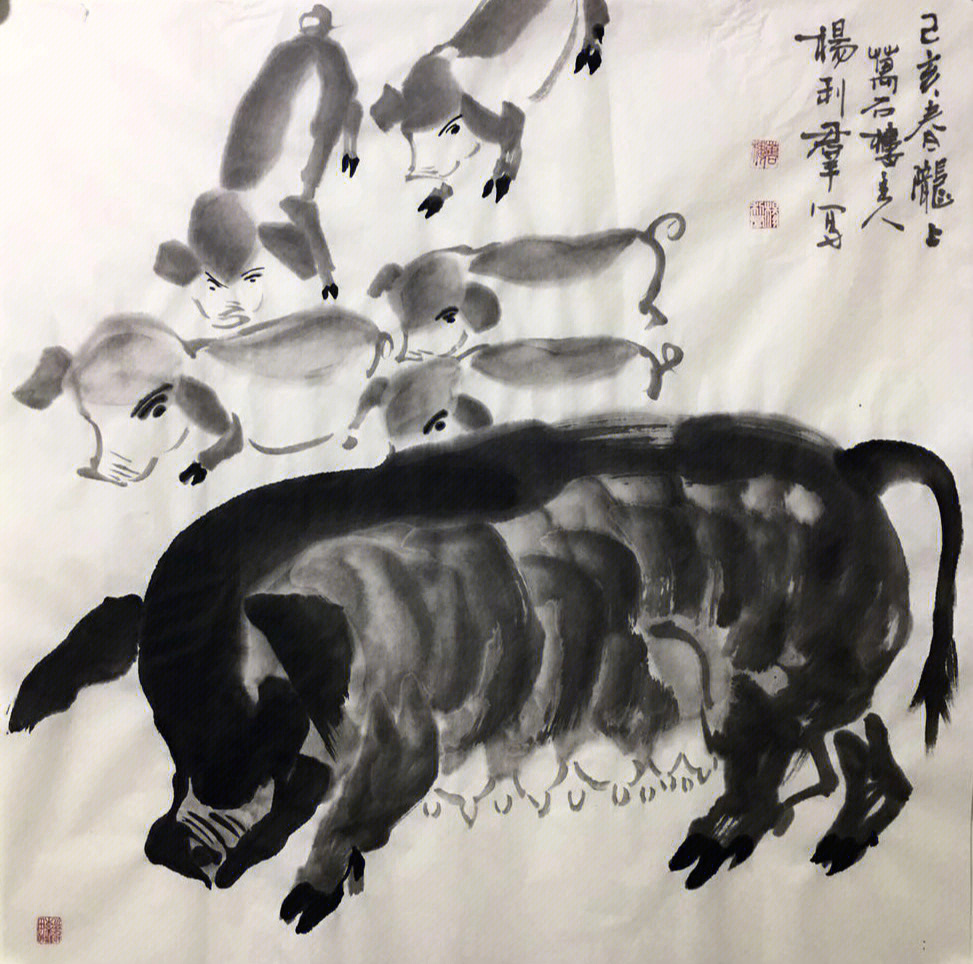 己亥春隴上
萬石樓主人
楊利群寫